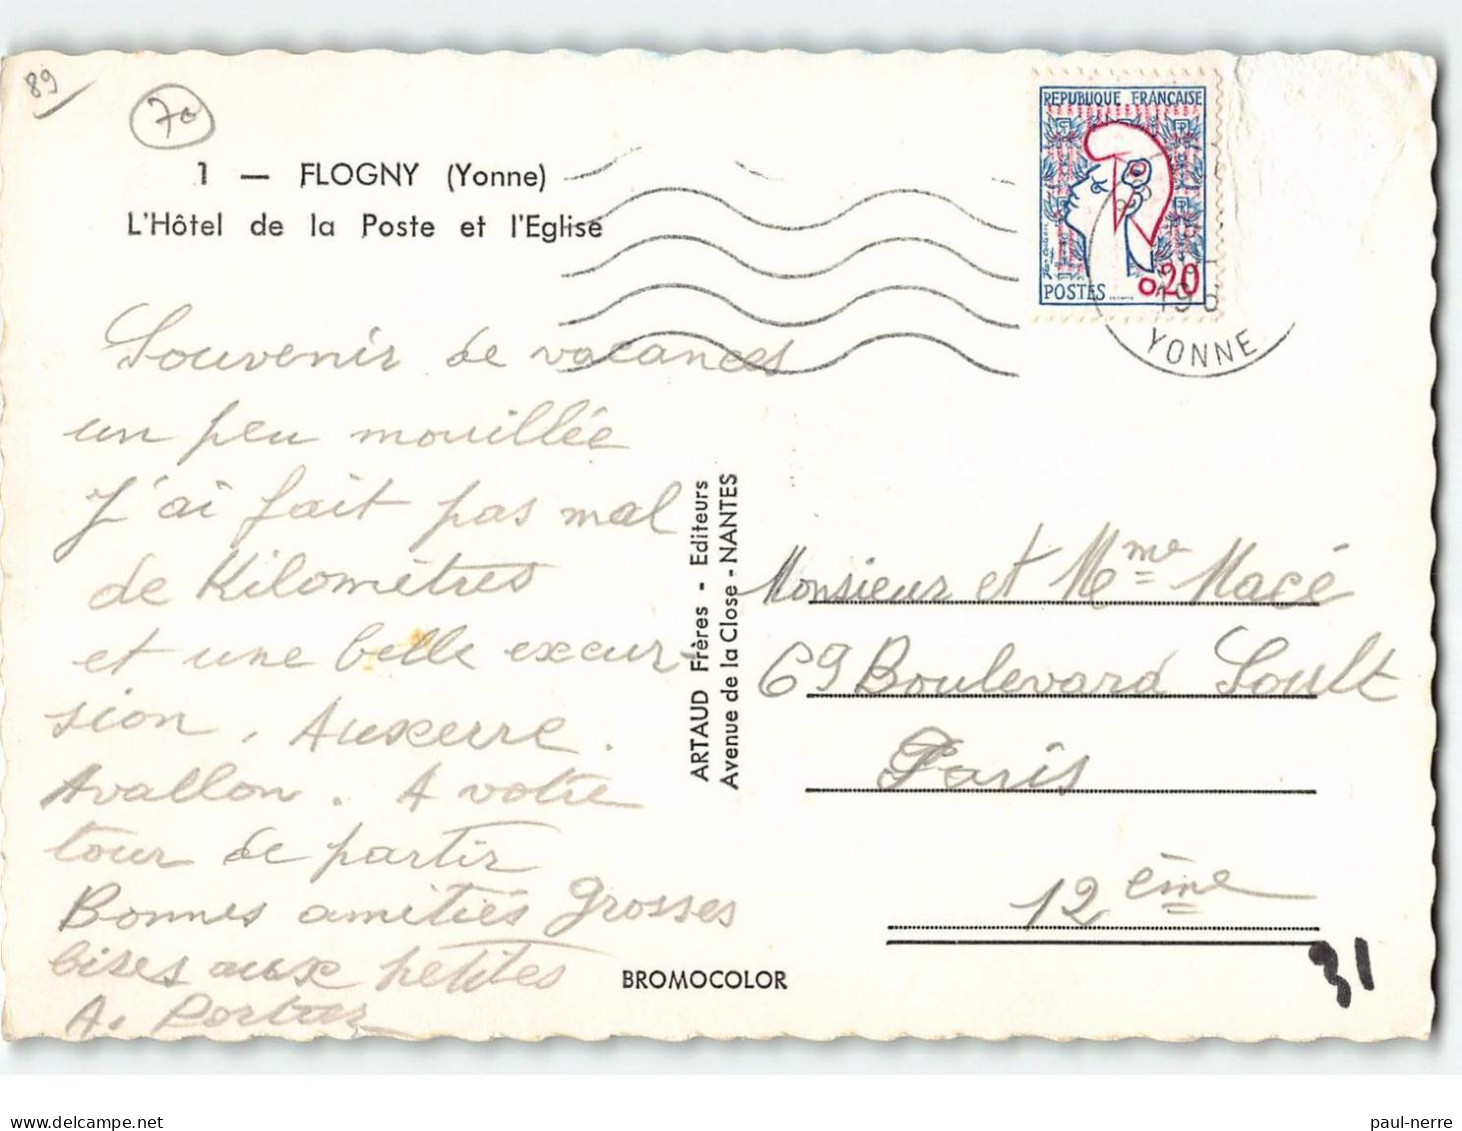 89
70
1 — FLOGNY (Yonne)
L'Hôtel de la Poste et l'Eglise
REPUBLIQUE FRANCAISE
0.20
POSTES
196
YONNE
Souvenir de vacances
un peu mouillée
J'ai fait pas mal
de Kilomètres
et une belle excur-
sion. Auxerre.
Avallon. A votre
tour de partir
Bonnes amitiés Grosses
bises aux petites
A.
ARTAUD Frères - Editeurs
Avenue de la Close - NANTES
Monsieur et Mme Macé
69 Boulevard Soult
Paris
12 ème
BROMOCOLOR
31
paul-nerre